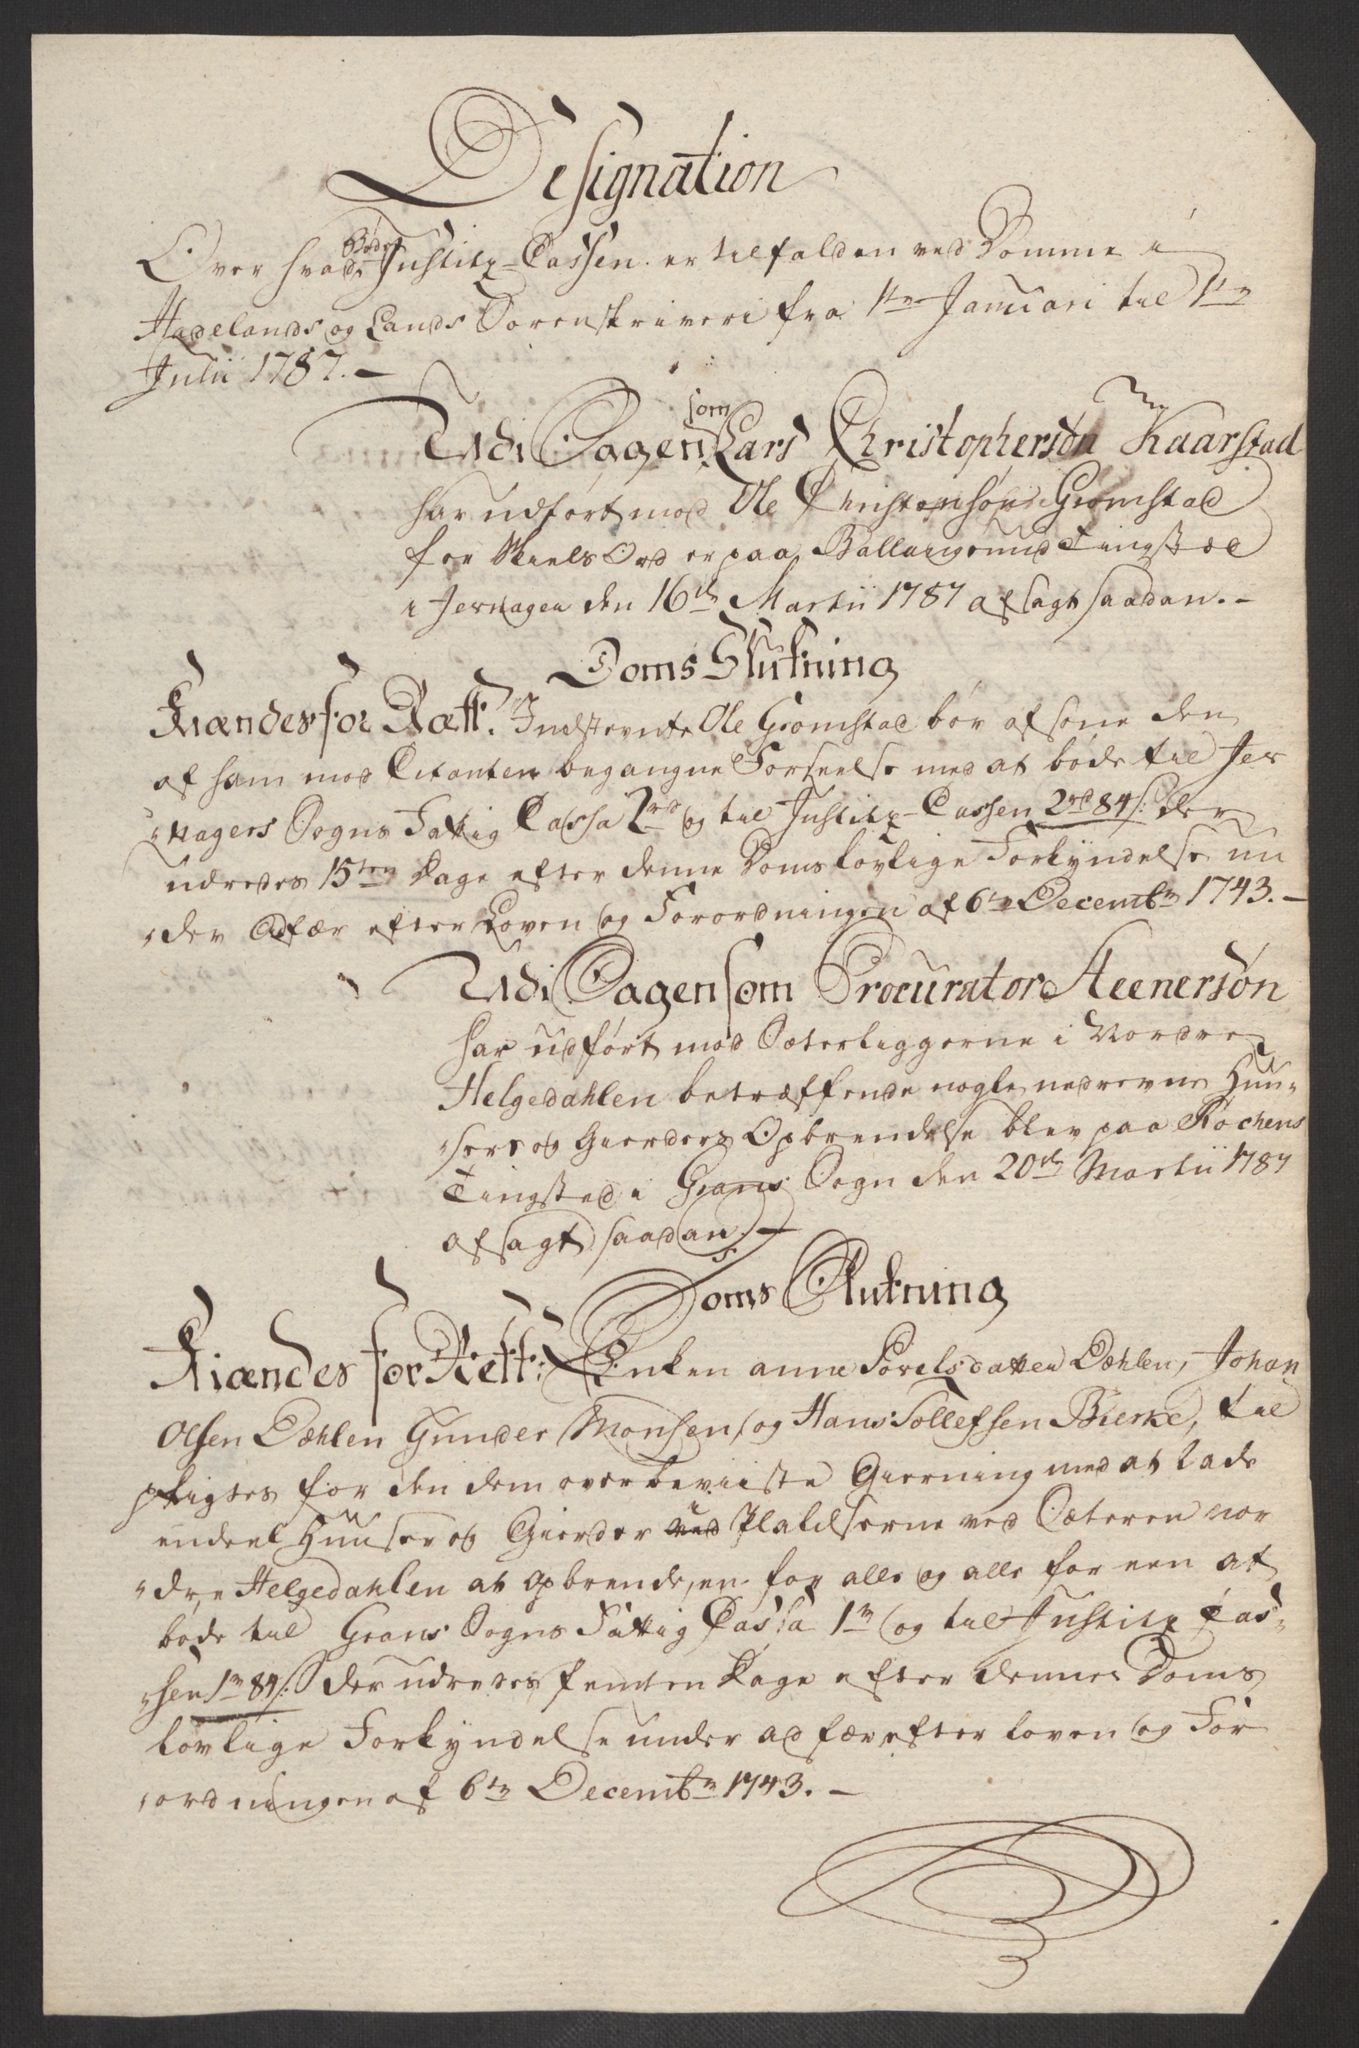 Designation
Over hvad Bøder Justitz-Cassen er tilfalden ved Domme i
Hadelands og Lands Sorenskriveri fra 1ste Januari til 1ste
Julii 1787.-
Udi Sagen som Lars Christophersøn Kaarstad
har udført mod Ole Christensøn Gromstad
for Skiels Ord er paa Ballangrund Tingsted
i Jevnager den 16de Martii 1787 afsagt saadan.-
Doms Slutning
Kiændes for Rætt. Indstevnte Ole Gromstad bør afsone den
af ham mod Citanten begangne Forseelse med at bøde til Jev
"nagers Sogns Fattig Cassa 2rd og til Justitz-Cassen 2rd 84s: der
udredes 15ten Dage efter denne Doms lovlige Forkyndelse un
"der Adfær efter Loven og Forordningen af 6te Decembr 1743.-
Udi Sagen som Procurator Steenersøn
har udført mod Sæterliggerne i Nordre
Helgedahlen betræffende nogle nedrevne Huu-
"sers og Gierders Opbrendelse blev paa Røchens
Tingsted i Grans Sogn den 20de Martii 1787
afsagt saadan.-
Doms Slutning
Kiændes for Rett: Enken Anne Povelsdatter Dæhlen, Johan
Olsen Dæhlen Gunder Monsen, og Hans Tollefsen Bierke, til
pligtes for den dem overbeviiste Gierning med at lade
endeel Huuser og Gierder ved i Pladserne ved Sæteren nor
"dre Helgedahlen at opbrende, en for alle og alle for een at
bøde til Grans Sogns Fattig Cassa 1rd og til Justitz Cas-
"sen 1rd 84s: der udredes femten Dage efter denne Doms
lovlige Forkyndelse under adfær efter loven og For
"ordningen af 6te Decembr 1743.-